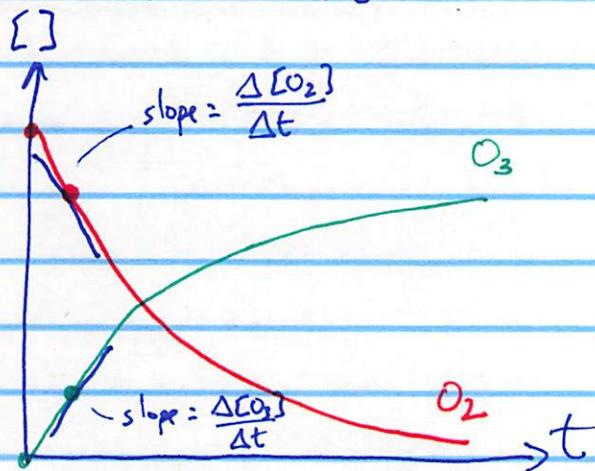 [ ]
slope = Δ[O₂]/Δt
O₃
slope = Δ[O₃]/Δt
O₂
t